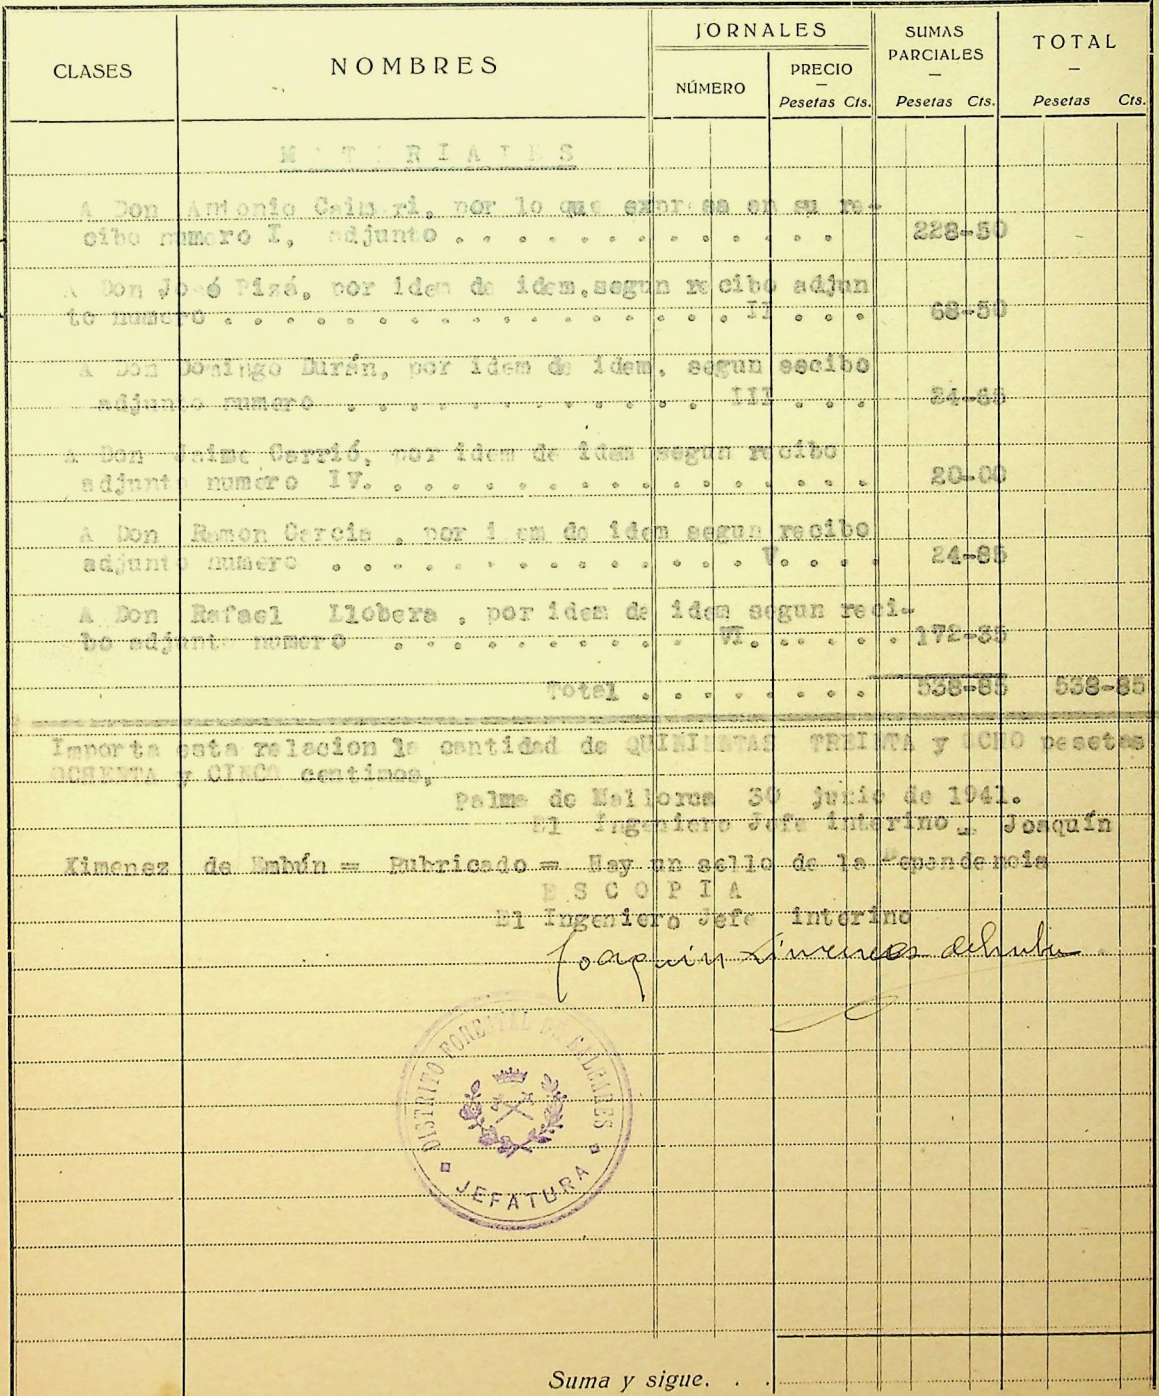 CLASES
NOMBRES
JORNALES
NÚMERO
PRECIO
Pesetas Cts.
SUMAS
PARCIALES
Pesetas Cts.
TOTAL
Pesetas Cts.
MATERIALES
A Don Antonio Caimari, por lo que expresa en su re-
cibo numero I, adjunto . . . . . . . . . . . . . . 228-50
A Don José Pizá, por idem de idem, segun recibo adjun
to numero . . . . . . . . . . . . . . . . . . II . . . 68-50
A Don Domingo Durán, por idem de idem, segun secibo
adjunto numero . . . . . . . . . . . . . III . . . 24-65
A Don Jaime Carrió, por idem de idem segun recibo
adjunto numero IV. . . . . . . . . . . . . . . . . 20-00
A Don Ramon Garcia , por i em de idem segun recibo
adjunto numero . . . . . . . . . . . . . . . V. . . . 24-85
A Don Rafael Llobera , por idem de idem segun reci-
bo adjunto numero . . . . . . . . . . VI. . . . . . 172-35
Total . . . . . . . . 538-85 538-85
Importa esta relacion la cantidad de QUINIENTAS TREINTA y OCHO pesetas
OCHENTA y CINCO centimos,
Palma de Mallorca 30 junio de 1941.
El Ingeniero Jefe interino = Joaquín
Ximenez de Embún = Rubricado = Hay un sello de la Dependencia
ES COPIA
El Ingeniero Jefe interino
Joaquin Ximenez de Embun
DISTRITO FORESTAL DE BALEARES
JEFATURA
Suma y sigue. . .